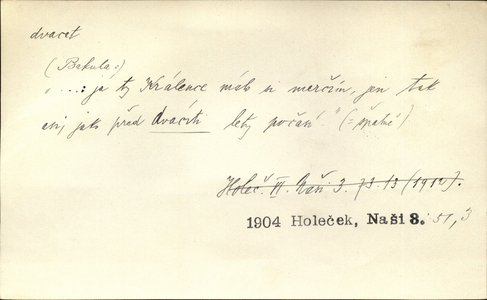 dvacet
(Bakula:)
„...: já ty Králence máš ni merčím, jen tak
asi jako před dvácíti lety počasí" (= špatně)
Holeč. III. Naši 3. 73.13 (1910).
1904 Holeček, Naši 3. 51,3